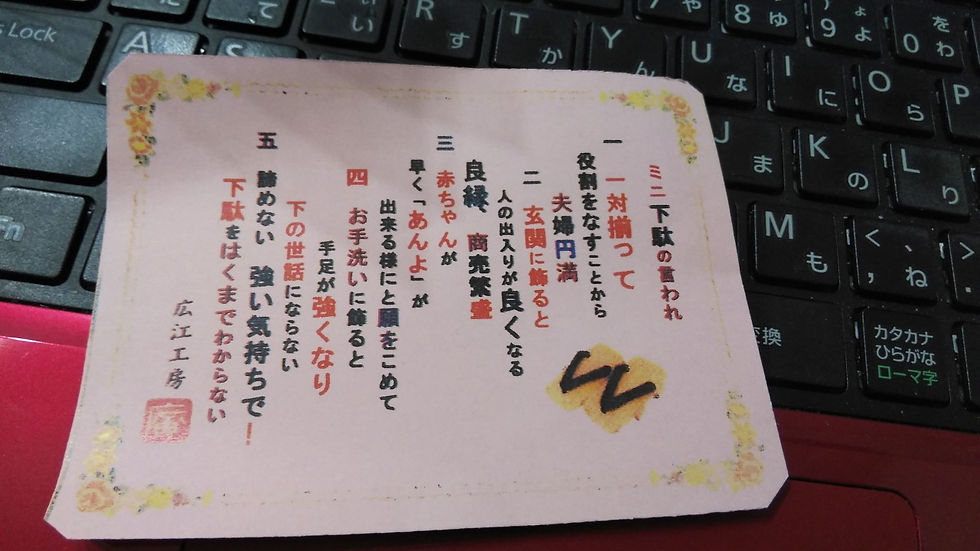 ミニ下駄の言われ
一 一対揃って
役割をなすことから
夫婦円満
二 玄関に飾ると
人の出入りが良くなる
良縁、商売繁盛
三 赤ちゃんが
早く「あんよ」が
出来る様にと願をこめて
四 お手洗いに飾ると
手足が強くなり
下の世話にならない
五 諦めない 強い気持ちで!
下駄をはくまでわからない
広江工房
Lock
A
S
い
R
す
T
か
Y
ん
U
な
7
や
8
ゆ
9
よ
0
を
わ
I
に
O
ら
P
J
ま
K
の
L
り
M
も
<
、
,
ね
>
.
Fn
変換
カタカナ
ひらがな
ローマ字